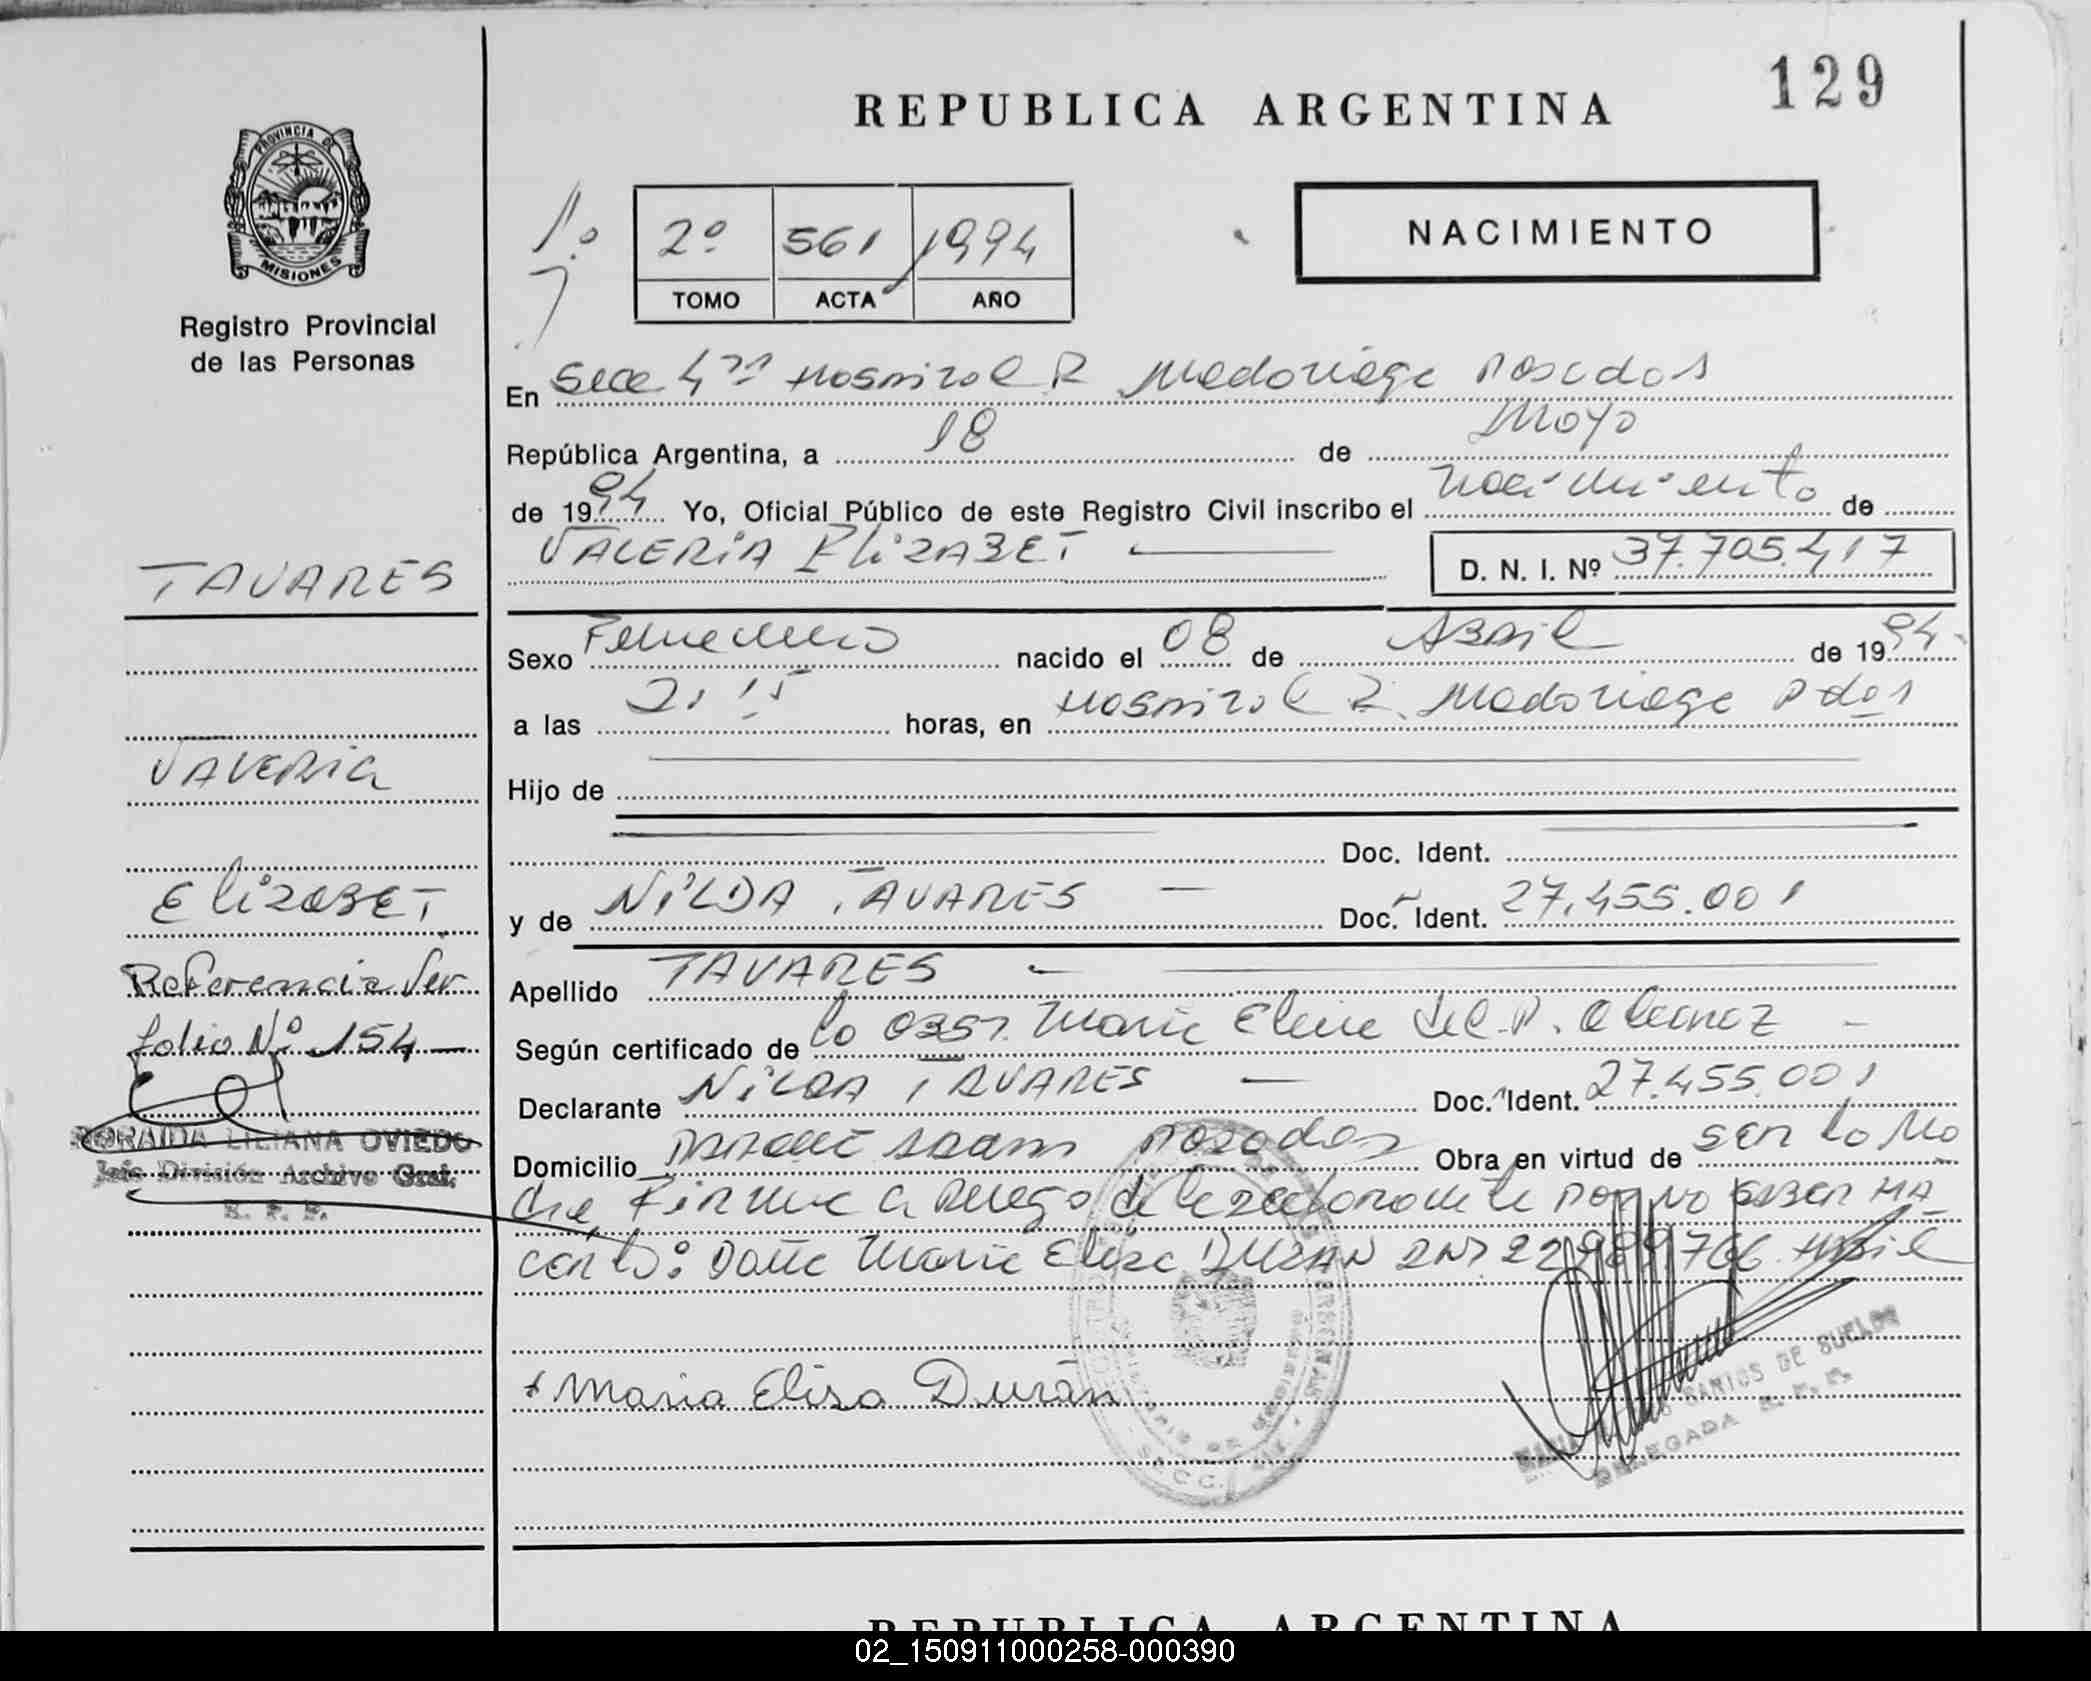 129
REPUBLICA ARGENTINA
PROVINCIA DE
MISIONES
Registro Provincial
de las Personas
2º 561 1994
TOMO ACTA AÑO
NACIMIENTO
En Secc 4ta Hospital R Madariaga Posadas
República Argentina, a 18 de Mayo
de 1994 Yo, Oficial Público de este Registro Civil inscribo el nacimiento de
VALERIA ELIZABET
D. N. I. Nº 37.705.417
TAVARES
VALERIA
ELIZABET
Referencia Ver
folio Nº 154
ZORAIDA LILIANA OVIEDO
Jefe División Archivo Gral.
R. P. P.
Sexo Femenino nacido el 08 de Abril de 1994
a las 21 15 horas, en Hospital R. Madariaga Pdas
Hijo de
Doc. Ident.
y de NILDA TAVARES Doc. Ident. 27.455.001
Apellido TAVARES
Según certificado de la Obst. Maria Elena del P.
Declarante NILDA TAVARES Doc. Ident. 27.455.001
Domicilio Posadas Obra en virtud de ser la Ma
dre, Firma a Ruego de la declarante por no saber HA
cerlo: Doña Maria Elisa DURAN DNI 22989766 Habil
Maria Elisa Durán
SANTOS DE SUELOS
DELEGADA R. P. P.
REPUBLICA ARGENTINA
02_150911000258-000390